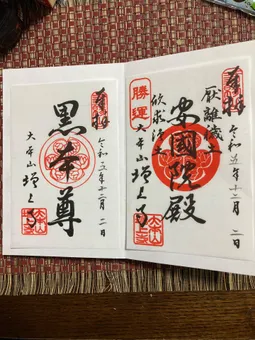 奉拝
厭離穢土
欣求浄土
令和五年十二月二日
安國院殿
勝運
大本山増上寺
奉拝
令和五年十二月二日
黒本尊
大本山増上寺